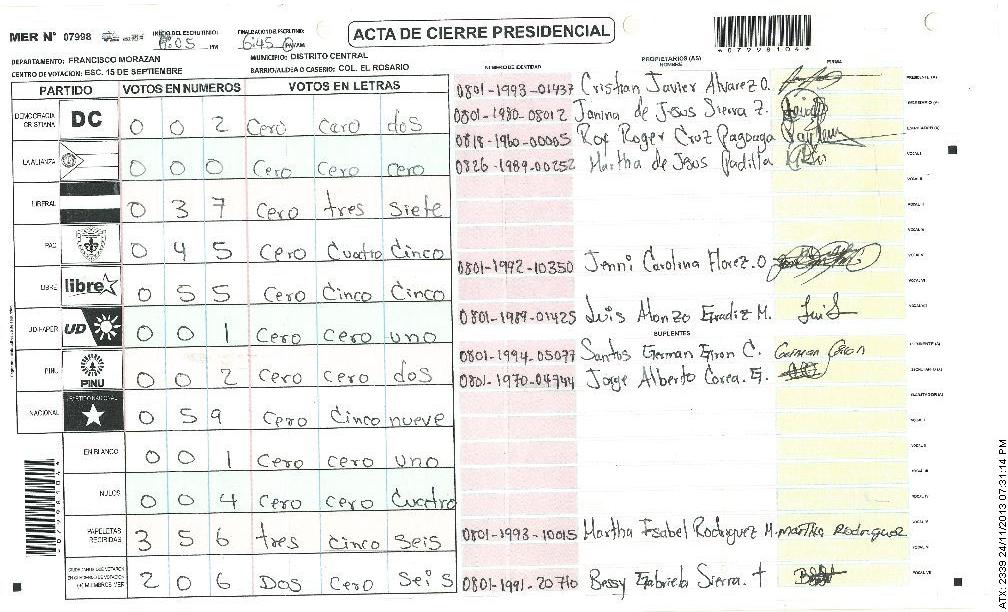 MER N° 07998
INICIO DEL ESCRUTINIO: 6:05 PM
FINALIZACION ESCRUTINIO: 6:45 PM/AM
ACTA DE CIERRE PRESIDENCIAL
*079981041*
DEPARTAMENTO: FRANCISCO MORAZAN
MUNICIPIO: DISTRITO CENTRAL
CENTRO DE VOTACION: ESC. 15 DE SEPTIEMBRE
BARRIO/ALDEA O CASERIO: COL. EL ROSARIO
PARTIDO VOTOS EN NUMEROS VOTOS EN LETRAS
DEMOCRACIA CRISTIANA DC 0 0 2 Cero cero dos
LA ALIANZA 0 0 0 Cero Cero cero
LIBERAL 0 3 7 Cero tres siete
PAC 0 4 5 Cero Cuatro Cinco
LIBRE libre 0 5 5 Cero Cinco Cinco
UD-FAPER UD 0 0 1 Cero cero uno
PINU PINU 0 0 2 Cero cero dos
NACIONAL PARTIDO NACIONAL 0 5 9 Cero Cinco nueve
EN BLANCO 0 0 1 Cero cero uno
NULOS 0 0 4 Cero cero Cuatro
PAPELETAS RECIBIDAS 3 5 6 tres cinco seis
2 0 6 Dos Cero Seis
NUMERO DE IDENTIDAD PROPIETARIOS (AS) NOMBRE FIRMA
0801-1993-01437 Cristian Javier Alvarez O. PRESIDENTE (A)
0801-1980-08012 Janina de Jesus Sierra Z. SECRETARIO (A)
0818-1960-00005 Roy Roger Cruz Pagoaga ESCRUTADOR (A)
0826-1989-00252 Martha de Jesus Padilla VOCAL I
VOCAL II
VOCAL III
VOCAL IV
0801-1992-10350 Jenni Carolina Florez. O VOCAL V
VOCAL VI
0801-1989-01425 Luis Alonzo Eradiz M. Luis VOCAL VII
SUPLENTES
0801-1994-05077 Santos German Giron C. German Giron PRESIDENTE (A)
0801-1970-04744 Jorge Alberto Corea. G. SECRETARIO (A)
ESCRUTADOR (A)
VOCAL I
VOCAL II
VOCAL III
VOCAL IV
0801-1993-10015 Martha Isabel Rodriguez M. Martha Rodriguez VOCAL V
VOCAL VI
0801-1991-20710 Bessy Gabriela Sierra. t VOCAL VII
ATX: 2339 24/11/2013 07:31:14 PM